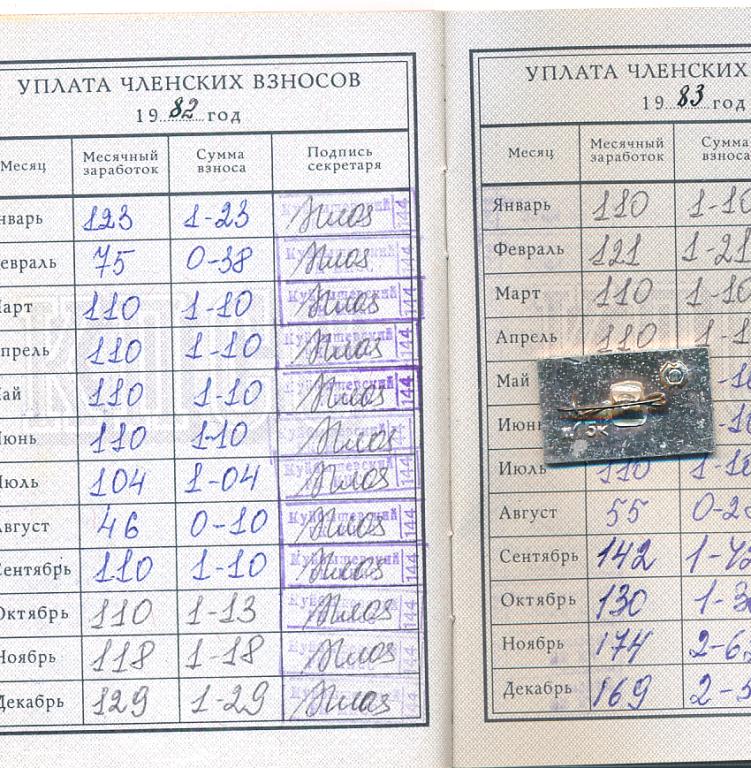 УПЛАТА ЧЛЕНСКИХ ВЗНОСОВ
1982 год
Месяц Месячный заработок Сумма взноса Подпись секретаря
нварь 123 1-23 144
евраль 75 0-38 144
арт 110 1-10 Куйбышевский 144
прель 110 1-10 Куйбышевский 144
ай 110 1-10 Куйбышевский 144
юнь 110 1-10 144
юль 104 1-04 Куйбышевский 144
вгуст 46 0-10 Куйбышевский 144
ентябрь 110 1-10 Куйбышевский 144
ктябрь 110 1-13 144
оябрь 118 1-18 144
екабрь 129 1-29 144
УПЛАТА ЧЛЕНСКИХ
1983 год
Месяц Месячный заработок Сумма взноса
Январь 110 1-10
Февраль 121 1-21
Март 110 1-10
Апрель 110 1-1
Май -10
Июнь -10
Июль 110 1-10
Август 55 0-2
Сентябрь 142 1-42
Октябрь 130 1-3
Ноябрь 174 2-6
Декабрь 169 2-5